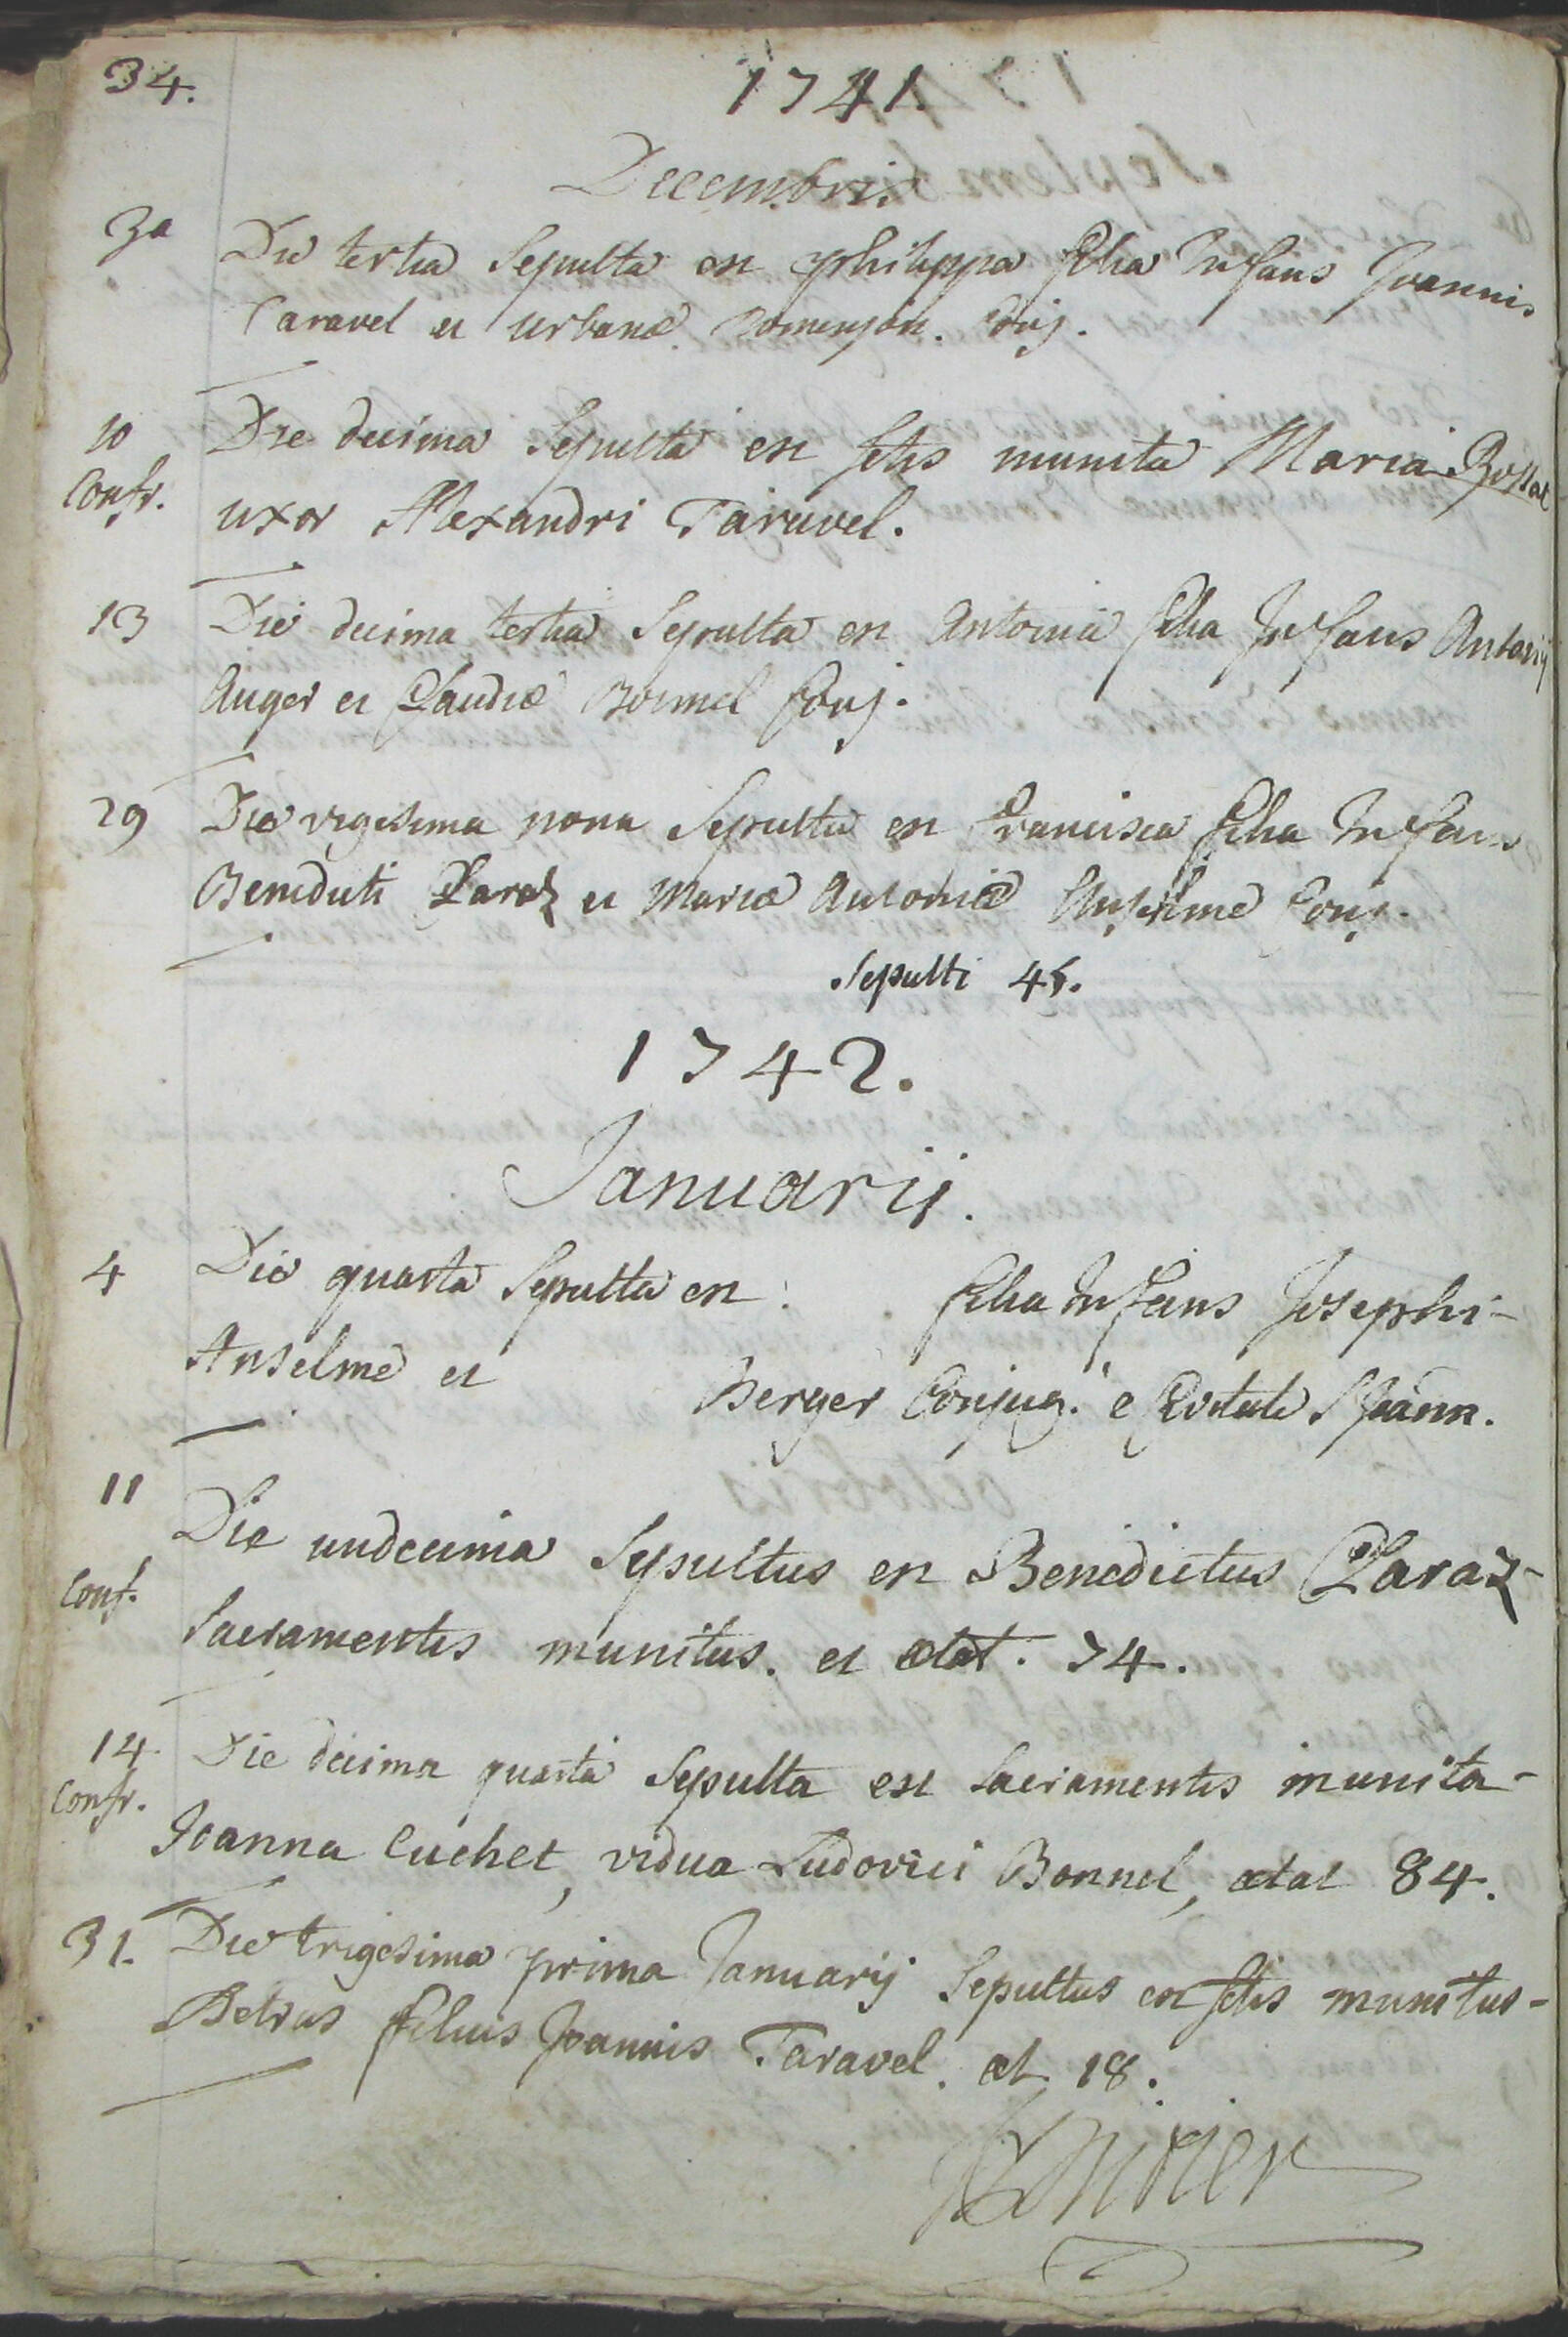 34.
1741
Decembris
3a Die tertia Sepulta est philippa filia Infans Joannis
Taravel et urbanæ Domenjon. Conj.
10 Die decima Sepulta est sctis munita Maria Bossat
Confr. uxor Alexandri Taravel.
13 Die decima tertia Sepulta est Antonia filia Infans Antonij
Auger et Claudiæ Bonnel Conj.
29 Die vigesima nona Sepulta est Francisca filia Infans
Benedicti Claraz et Mariæ Antoniæ Anselme Conj.
Sepulti 45.
1742.
Januarij.
4 Die quarta Sepulta est filia Infans Josephi
Anselme et Berger Conjug. e Civitate S Joann.
11 Die undecima Sepultus est Benedictus Claraz
Conf. Sacramentis munitus. et ætat. 74.
14 Die decima quarta Sepulta est Sacramentis munita
Confr. Joanna Cuchet, vidua Ludovici Bonnel, ætat 84.
31. Die trigesima prima Januarij Sepultus est sctis munitus
Petrus filius Joannis Taravel. æt 18.